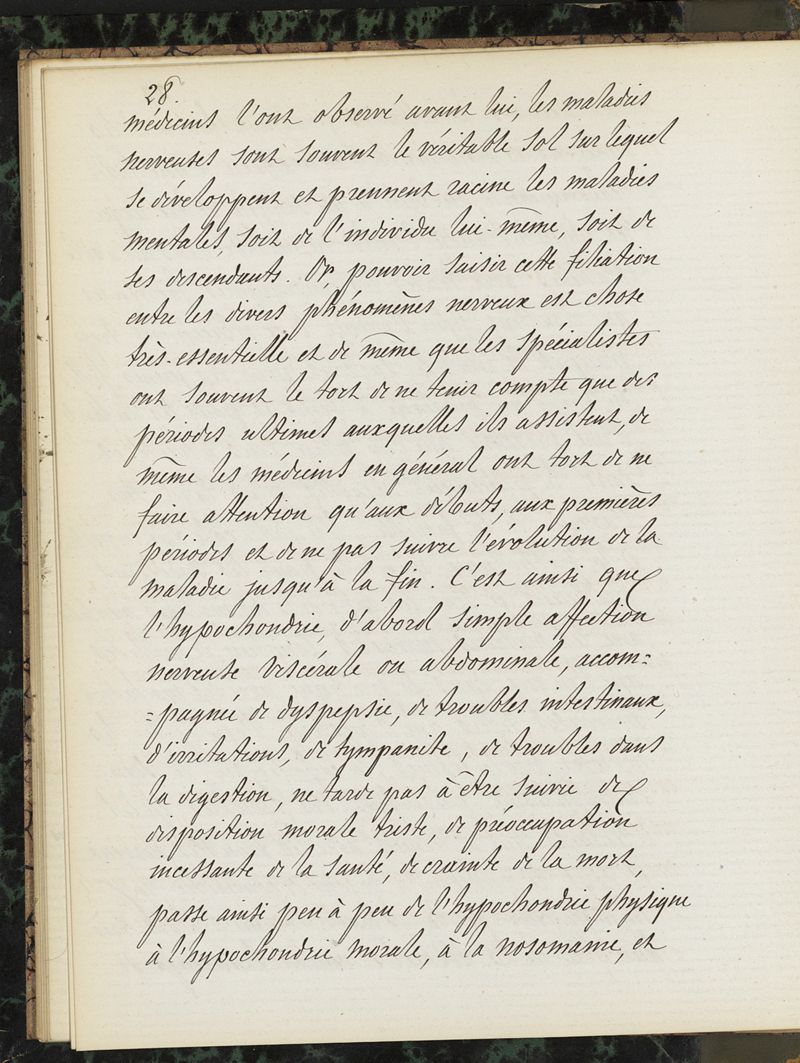 28.
médecins l'ont observé avant lui, les maladies
nerveuses sont souvent le véritable sol sur lequel
se développent et prennent racine les maladies
mentales, soit de l'individu lui-même, soit de
ses descendants. Or, pouvoir saisir cette filiation
entre les divers phénomènes nerveux est chose
très-essentielle et de même que les spécialistes
ont souvent le tort de ne tenir compte que des
périodes ultimes auxquelles ils assistent, de
même les médecins en général ont tort de ne
faire attention qu'aux débuts, aux premières
périodes et de ne pas suivre l'évolution de la
maladie jusqu'à la fin. C'est ainsi que
l'hypochondrie, d'abord simple affection
nerveuse viscérale ou abdominale, accom=
=pagnée de dyspepsie, de troubles intestinaux,
d'irritations, de tympanite, de troubles dans
la digestion, ne tarde pas à être suivie de
disposition morale triste, de préoccupation
incessante de la santé, de crainte de la mort,
passe ainsi peu à peu de l'hypochondrie physique
à l'hypochondrie morale, à la nosomanie, et